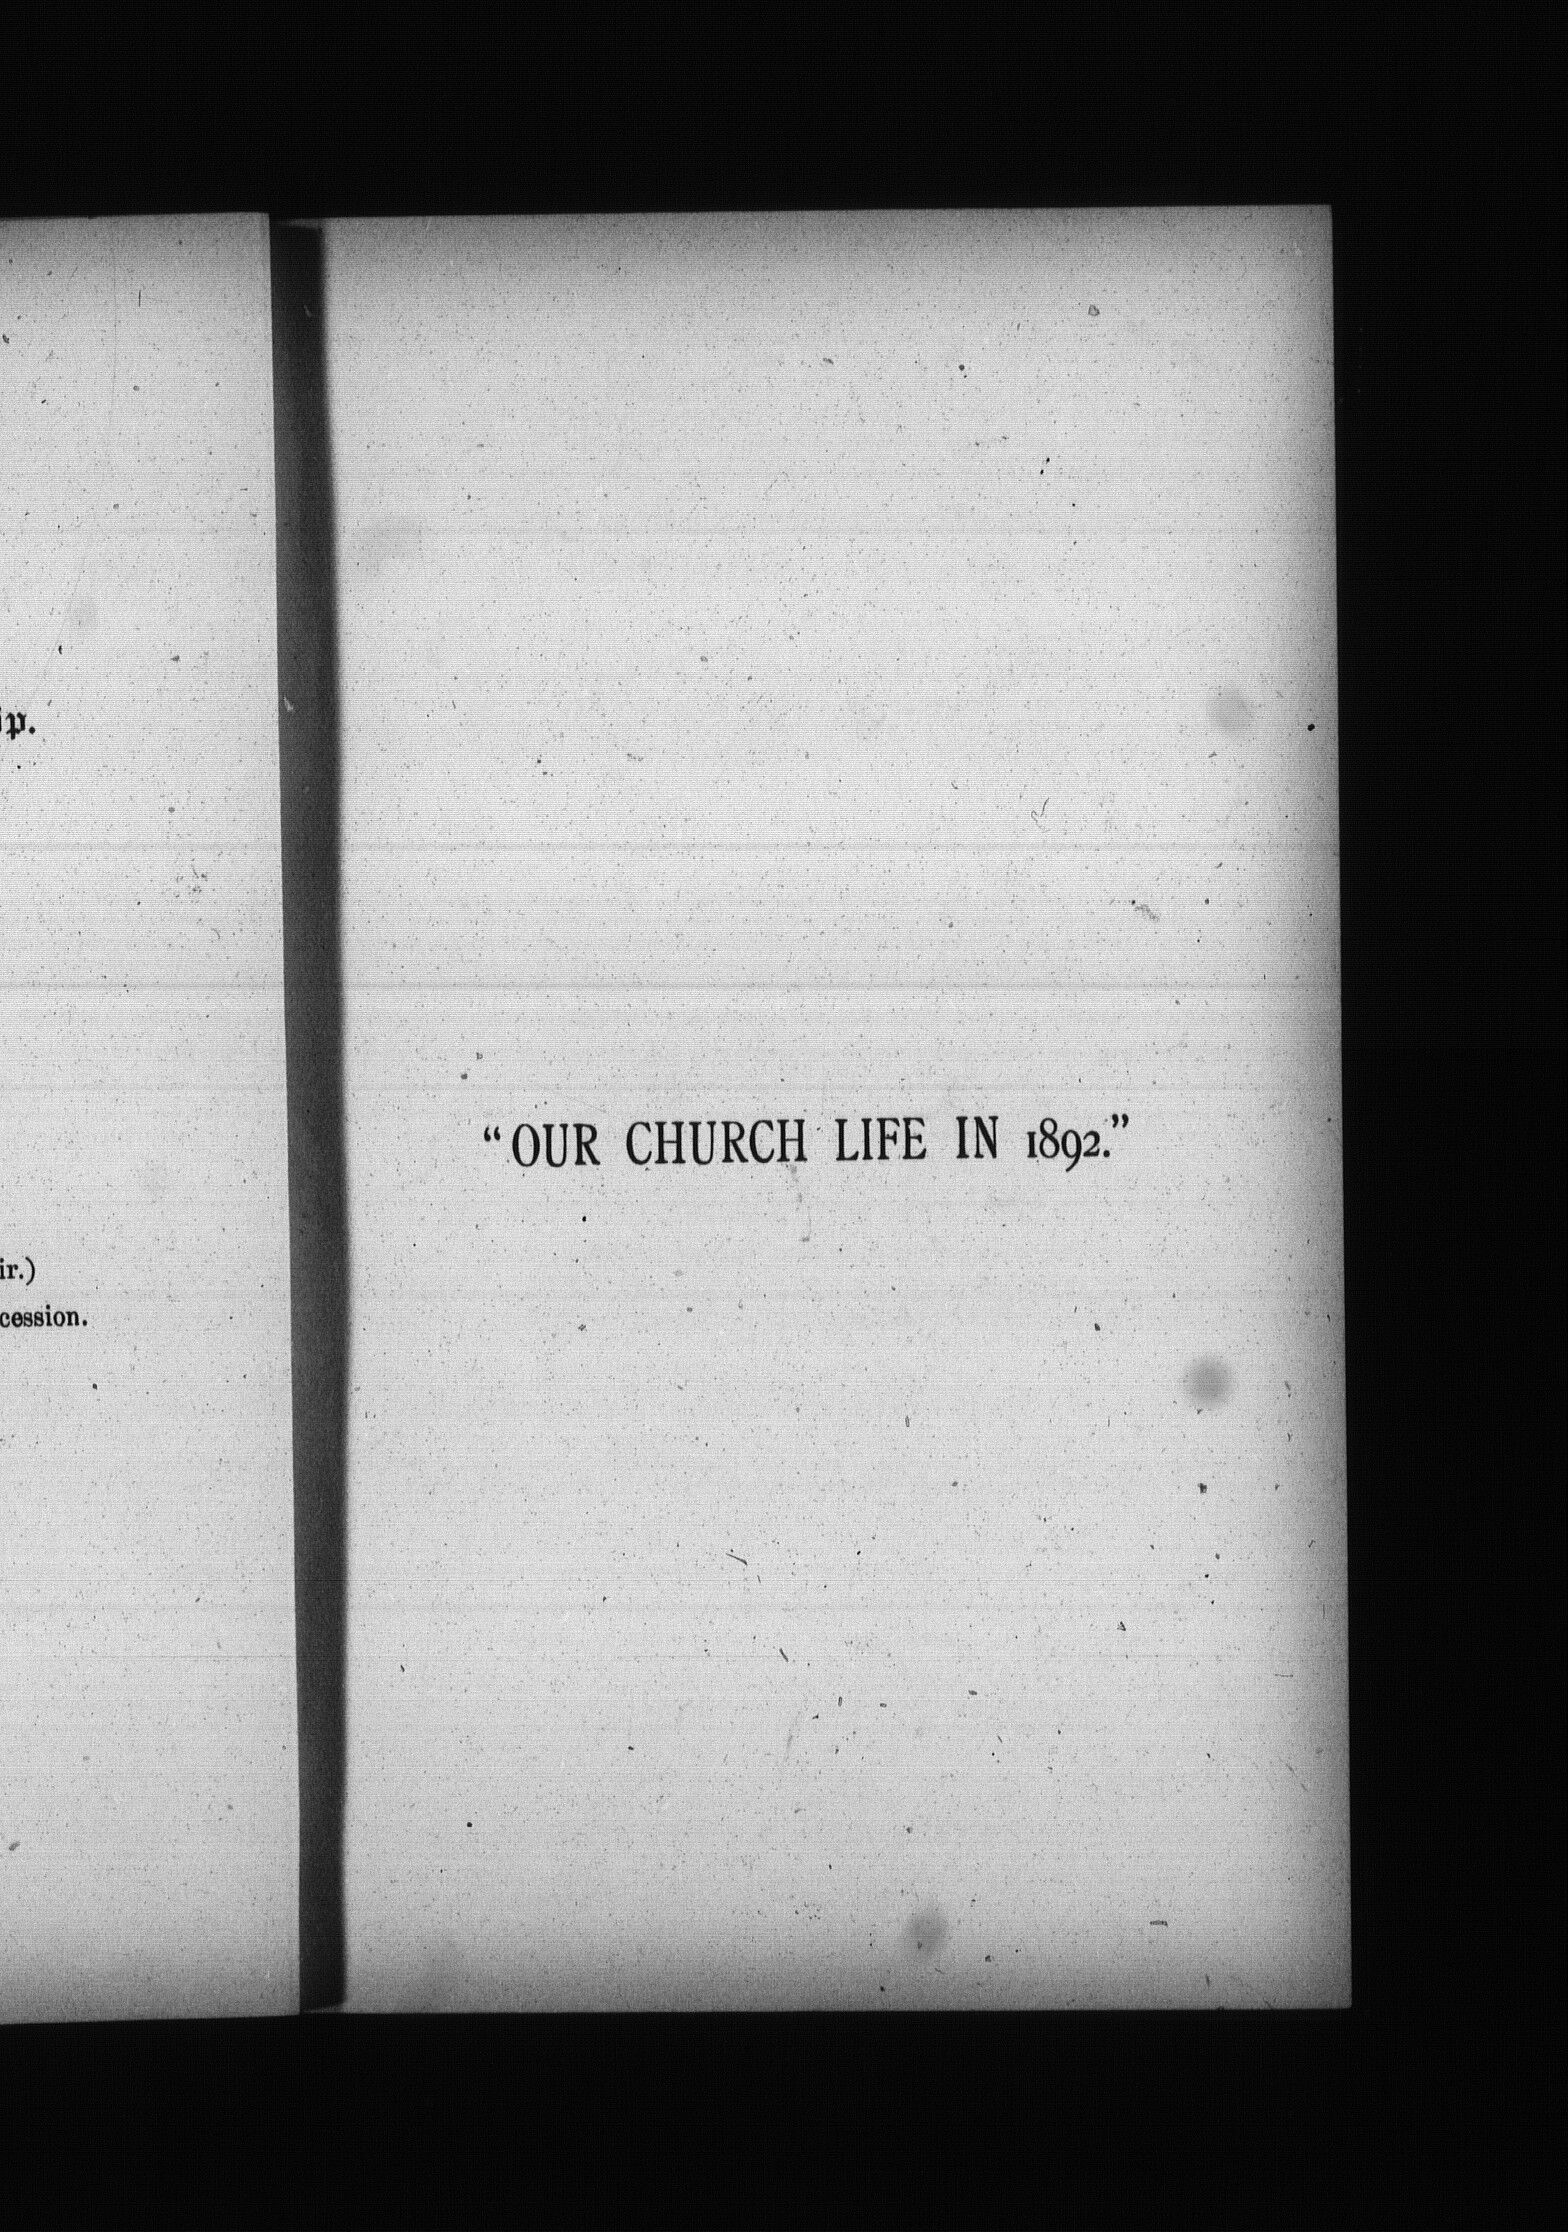 cession.
“OUR CHURCH LIFE IN 1892.”